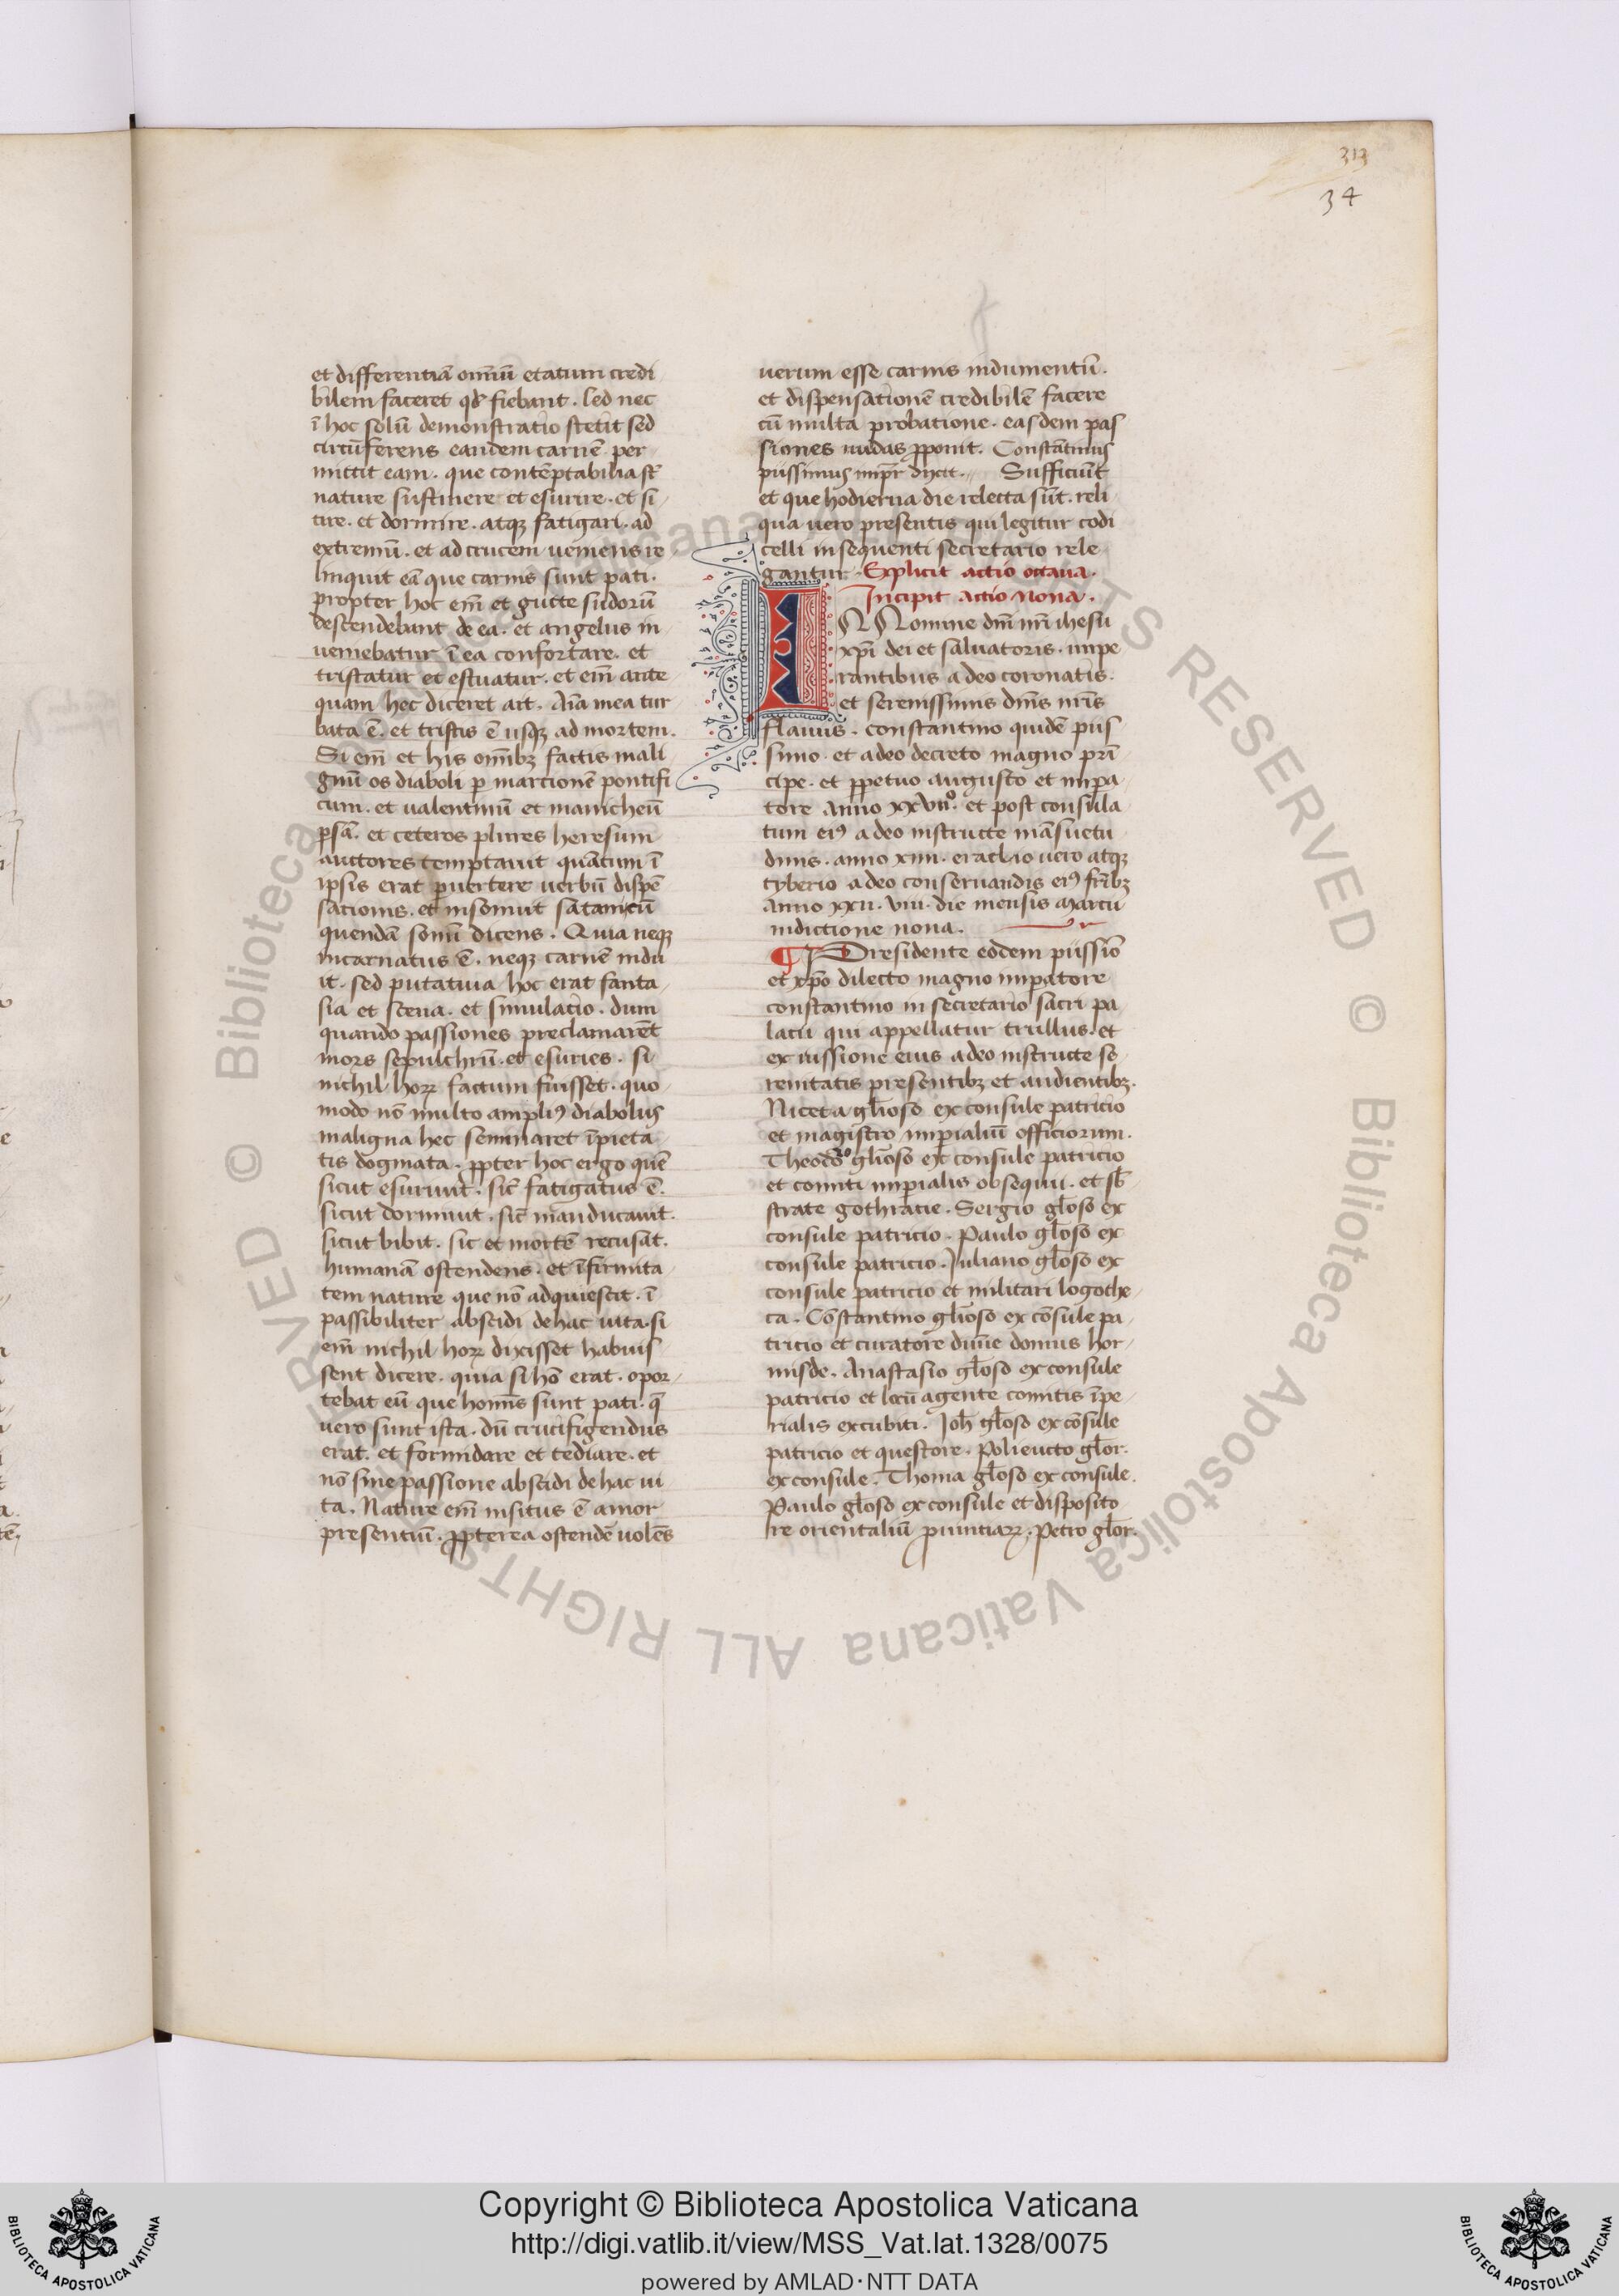 313
34
et differentiā omīū etatum credi
bilem faceret qđ fiebant. Sed nec
ī hoc solū demonstratio stetit sed
circūferens eandem carnē per
mittit eam. que contēptabilia st̄
nature sustinere et esurire. et si
tire. et dormire. atqȝ fatigari. ad
extremū. et ad crucem ueniens re
linquit eā que carnis sunt pati.
propter hoc em̄ et gutte sudorū
descendebant de ea. et angelus in
ueniebatur ī ea confortare. et
tristatur et estuatur. et em̄ ante
quam hec diceret ait. Aīa mea tur
bata ē. et tristis ē usqȝ ad mortem.
Si em̄ et his omībȝ factis mali
gnū os diaboli ꝑ marcionē pontifi
cum. et ualentinū et manicheū
ꝑsā. et ceteros plures heresum
auctores temptauit quātum ī
ipsis erat ꝑuertere uerbū dispē
sationis. et insonuit satanicū
quendā sonū dicens. Quia neqȝ
incarnatus ē. neqȝ carnē indu
it. sed putatiua hoc erat fanta
sia et scena. et simulatio. dum
quando passiones preclamarēt
mors sepulchrū. et esuries. si
nichil hoꝝ factum fuisset. quo
modo nō multo ampliꝰ diabolus
maligna hec seminaret īpieta
tis dogmata. ꝓpter hoc ergo quē
sicut esuriuit. sic̄ fatigatus ē.
sicut dormiuit. sic̄ manducauit.
sicut bibit. sic et mortē recusāt.
humanā ostendens. et īfirmita
tem nature que nō adquiescit. ī
passibiliter abscidi de hac uita. si
em̄ nichil hoꝝ dixisset habuis
sent dicere. quia si hō erat. opor
tebat eū que homīs sunt pati. q̄
uero sunt ista. dū crucifigendus
erat. et formidare et tediare. et
nō sine passione abscidi de hac ui
ta. Nature em̄ insitus ē amor
presentiū. ꝓpterea ostendē uolēs
uerum esse carnis indumentū.
et dispensationē credibilē facere
cū multa probatione. easdem pas
siones nudas ꝓponit. Constātinus
piissimus impr̄ dixit. Sufficiūt
et que hodierna die relecta sūt. reli
qua uero presentis qui legitur codi
celli in sequenti secretario rele
gantur. Explicit actio octaua.
Incipit Actio Nona.
IN Nomine dn̄i nr̄i ihesu
xp̄i dei et saluatoris. impe
rantibus a deo coronatis.
et serenissimis dn̄is nr̄is
flauiis. constantino quidē piis
simo. et a deo decreto magno prī
cipe. et ꝑpetuo augusto et imꝑa
tore Anno xxvii⁰. et post consula
tum eiꝰ a deo instructe māsuetu
dinis. anno xiiii. eraclio uero atqȝ
tyberio a deo conseruandis eiꝰ fr̄ibȝ
Anno xxii. viii. die mensis Marcii
indictione nona.
¶ Presidente eodem piissīo
et xp̄o dilecto magno imꝑatore
constantino in secretario sacri pa
lacii qui appellatur trullus. et
ex iussione eius a deo instructe se
renitatis presentibȝ et audientibȝ.
Niceta gl̄ioso ex consule patricio
et magistro imꝑialiū officiorum.
Theodo͛⁰ gl̄ioso ex consule patricio
et comiti imꝑialis obsequii. et sb̄
strate gothracie. Sergio gl̄oso ex
consule patricio. Paulo gl̄oso ex
consule patricio. Juliano gl̄oso ex
consule patricio et militari logothe
ca. Cōstantino gl̄ioso ex cōsule pa
tricio et curatore diuīe domus hor
misde. Anastasio gl̄oso ex consule
patricio et locū agente comitis īpe
rialis excubiti. Joh̄ gl̄oso ex cōsule
patricio et questore. Polieucto gl̄or.
ex consule. Thoma gl̄oso ex consule.
Paulo gl̄oso ex consule et disposito
re orientaliū ꝓuintiaꝝ. Petro gl̄or.
© Biblioteca Apostolica Vaticana ALL RIGHTS RESERVED
BIBLIOTECA APOSTOLICA VATICANA
Copyright © Biblioteca Apostolica Vaticana
http://digi.vatlib.it/view/MSS_Vat.lat.1328/0075
powered by AMLAD·NTT DATA
BIBLIOTECA APOSTOLICA VATICANA